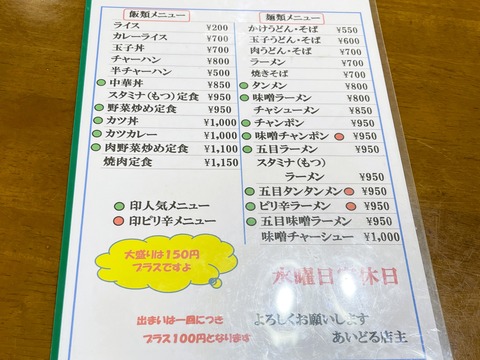 飯類メニュー
ライス ¥200
カレーライス ¥700
玉子丼 ¥700
チャーハン ¥800
半チャーハン ¥500
中華丼 ¥850
スタミナ(もつ)定食 ¥950
野菜炒め定食 ¥950
カツ丼 ¥1,000
カツカレー ¥1,000
肉野菜炒め定食 ¥1,100
焼肉定食 ¥1,150
印人気メニュー
印ピリ辛メニュー
麺類メニュー
かけうどん・そば ¥550
玉子うどん・そば ¥600
肉うどん・そば ¥700
ラーメン ¥700
焼きそば ¥700
タンメン ¥800
味噌ラーメン ¥800
チャシューメン ¥850
チャンポン ¥950
味噌チャンポン ¥950
五目ラーメン ¥950
スタミナ(もつ)
ラーメン ¥950
五目タンタンメン ¥950
ピリ辛ラーメン ¥950
五目味噌ラーメン ¥950
味噌チャーシュー ¥1,000
大盛りは150円
プラスですよ
水曜日定休日
出まいは一個につき
プラス100円となります
よろしくお願いします
あいどる店主